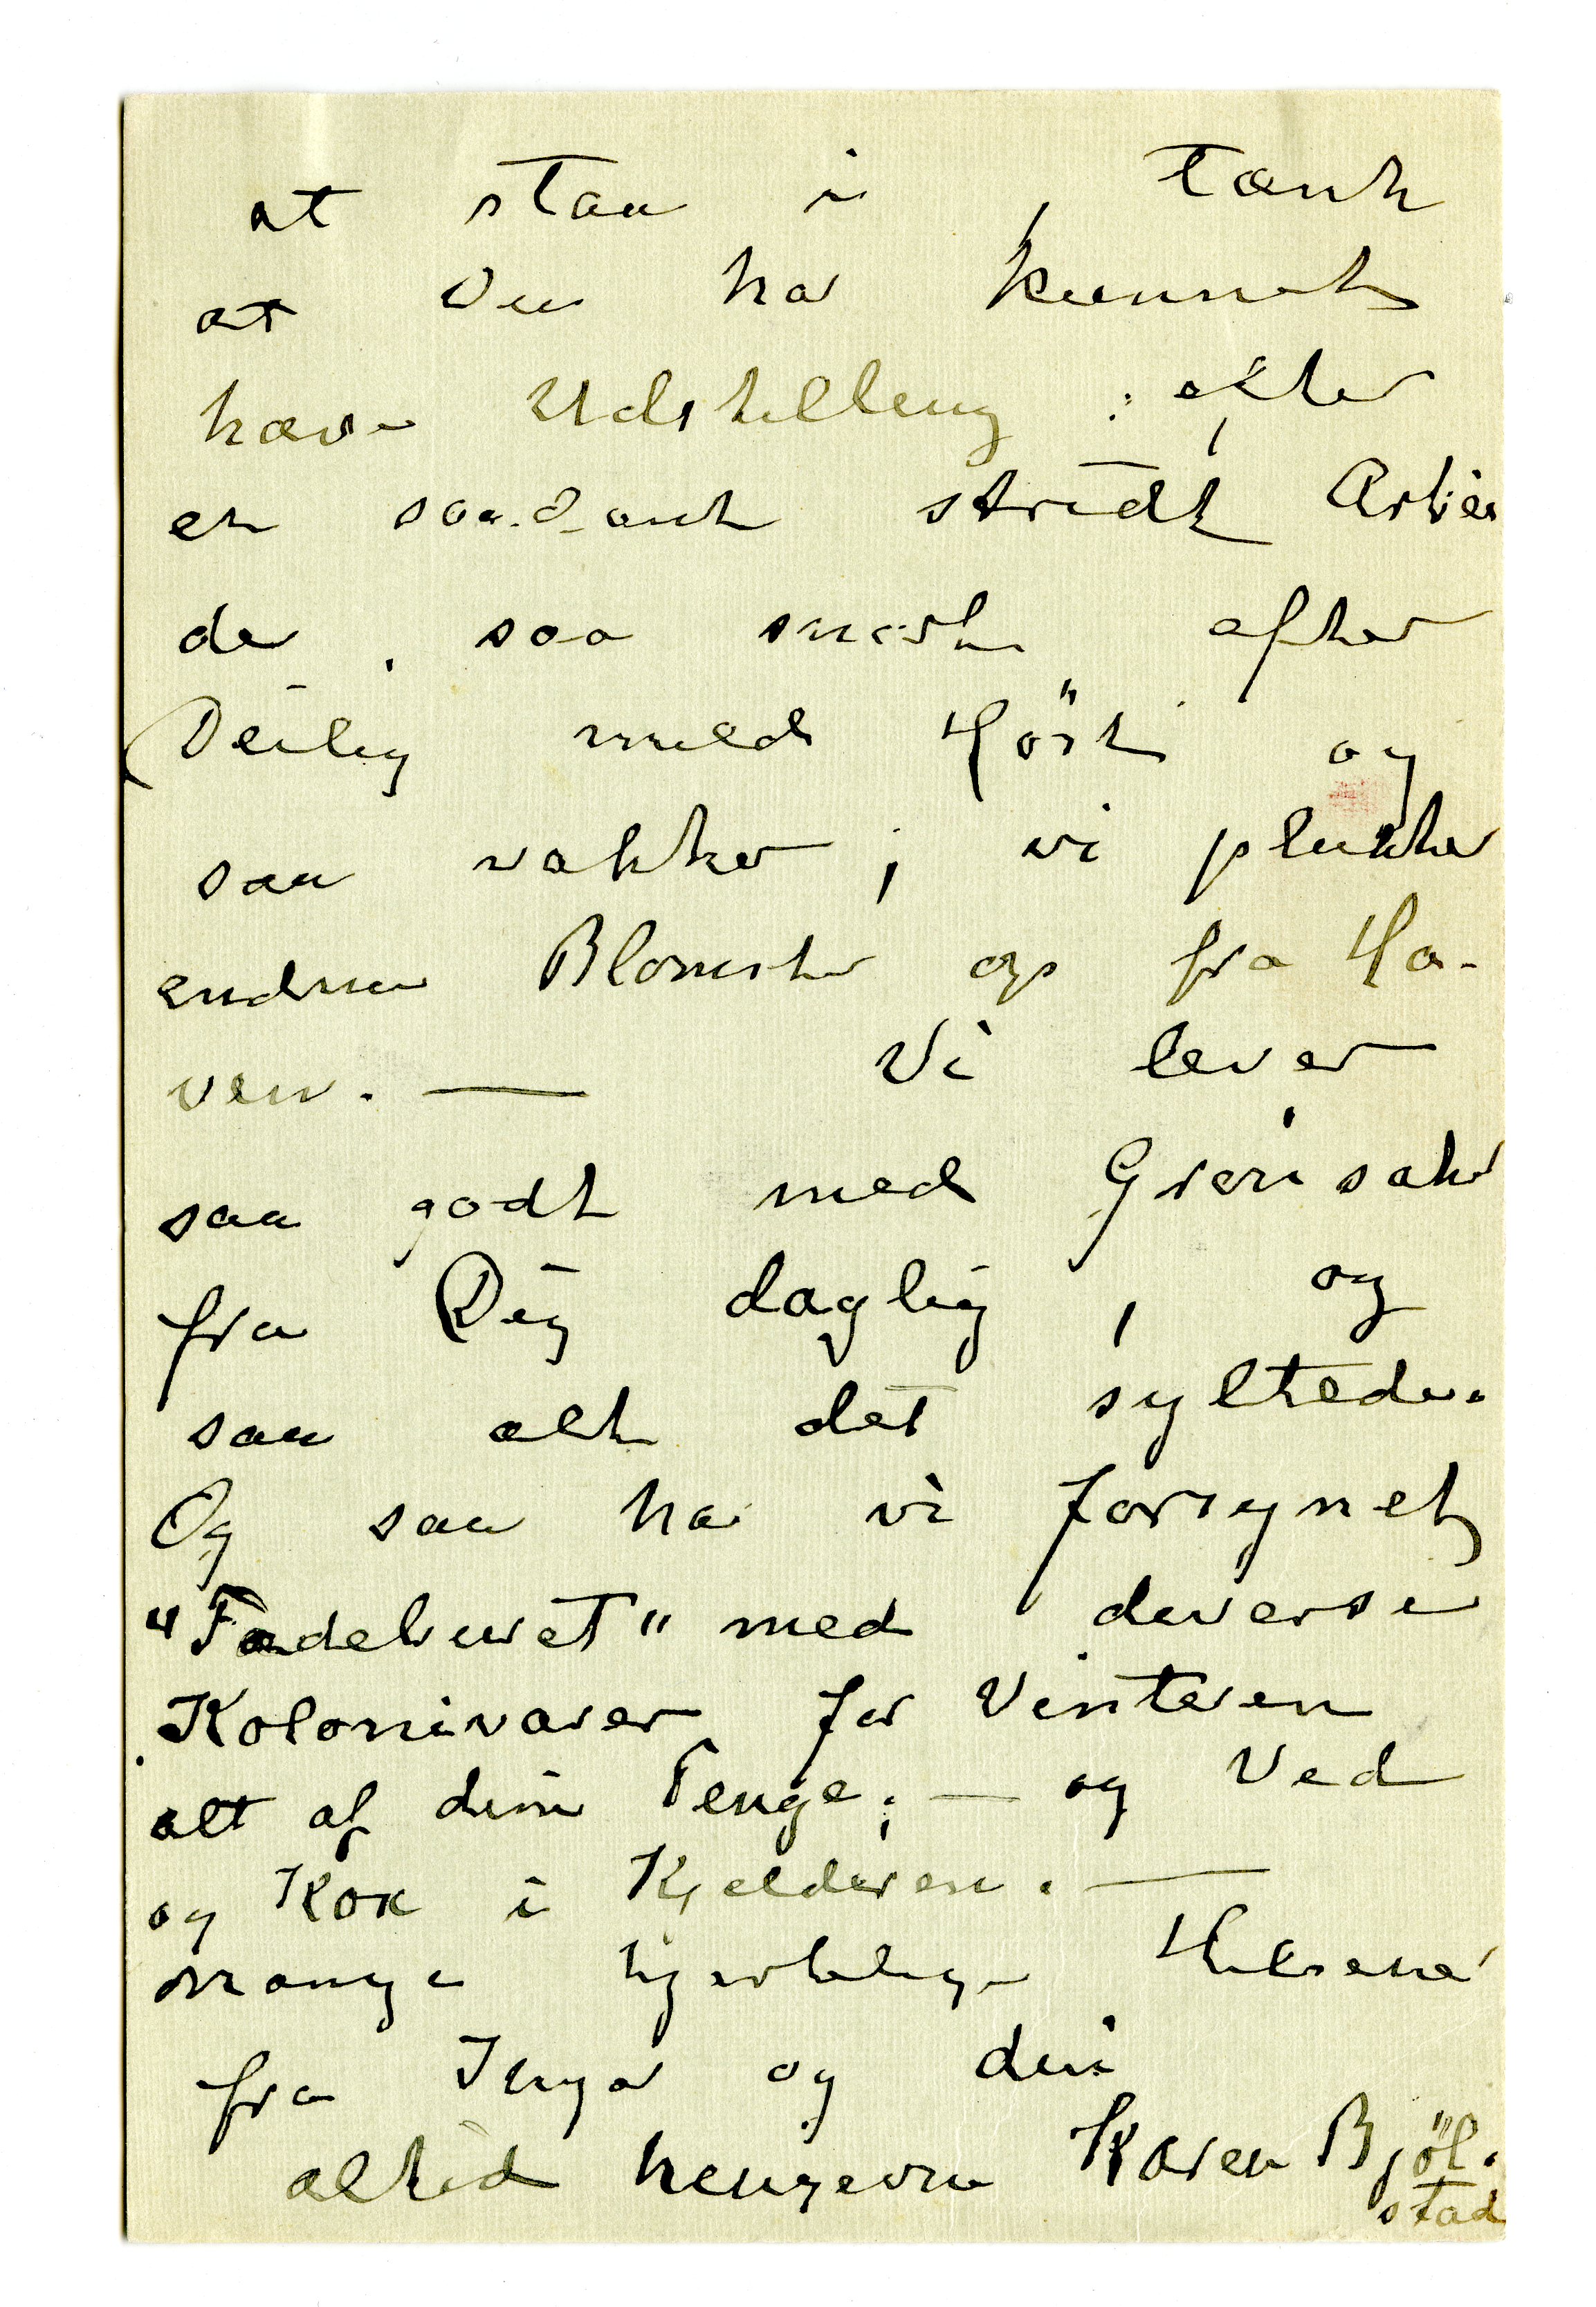 at staa i, tænk
at Du har kunnet
have Udstilling: efter
et saadant stridt Arbei
de, saa snart efter
Deilig mild Höst og
saa vakker; vi plukker
endnu Blomster op fra Ha-
ven. — Vi lever
saa godt med Grønsaker
fra Dig daglig, og
saa alt det syltede.
Og saa har vi forsynet
"Fadeburet" med diverse
Kolonivarer for Vinteren
alt af dine Penge; — og Ved
og Kok i Kjelderen. —
mange hjertelige Hilsener
fra Inger og din
altid hengivne Karen Bjöl-
stad